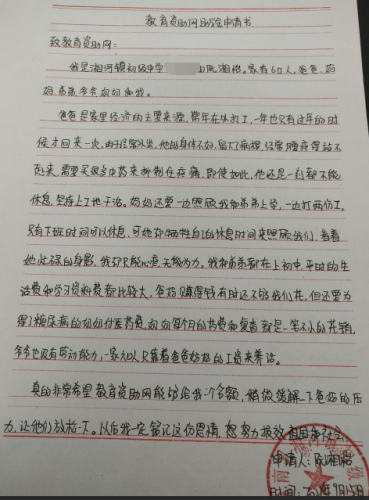 教育资助网助学申请书
致教育资助网：
我是湘河镇初级中学 阮湘怡，家有6口人，爸爸、妈
妈、弟弟、爷爷奶奶和我。
爸爸是家里经济的主要来源，常年在外打工，一年也只有过年的时
候才回来一次，由于经常外出，他的身体不好，留下了病根，经常腰疼得站不
起来，需要买很多中药来抑制住疼痛，即使如此，他还是一刻都不能
休息，坚持上工地干活。妈妈还要一边照顾我和弟弟上学，一边打两份工，
只有下班时间可以休息，可她却牺牲自己的休息时间来照顾我们，看着
她忙碌的身影，我却只能心疼，无能为力。我和弟弟都在上初中，平时的生
活费和学习资料费都比较大，爸妈赚得钱有时还不够我们花，但还要为
得了糖尿病的奶奶付医药费，奶奶每个月的药费和复查都是一笔不小的花销，
爷爷也没有劳动能力，一家人只靠着爸爸妈妈的工资来养活。
真的非常希望教育资助网能够给我一个名额，稍微缓解一下爸妈的压
力，让他们放松一下。以后我一定铭记这份恩情，努力报效祖国和社会
申请人：阮湘怡
时间：